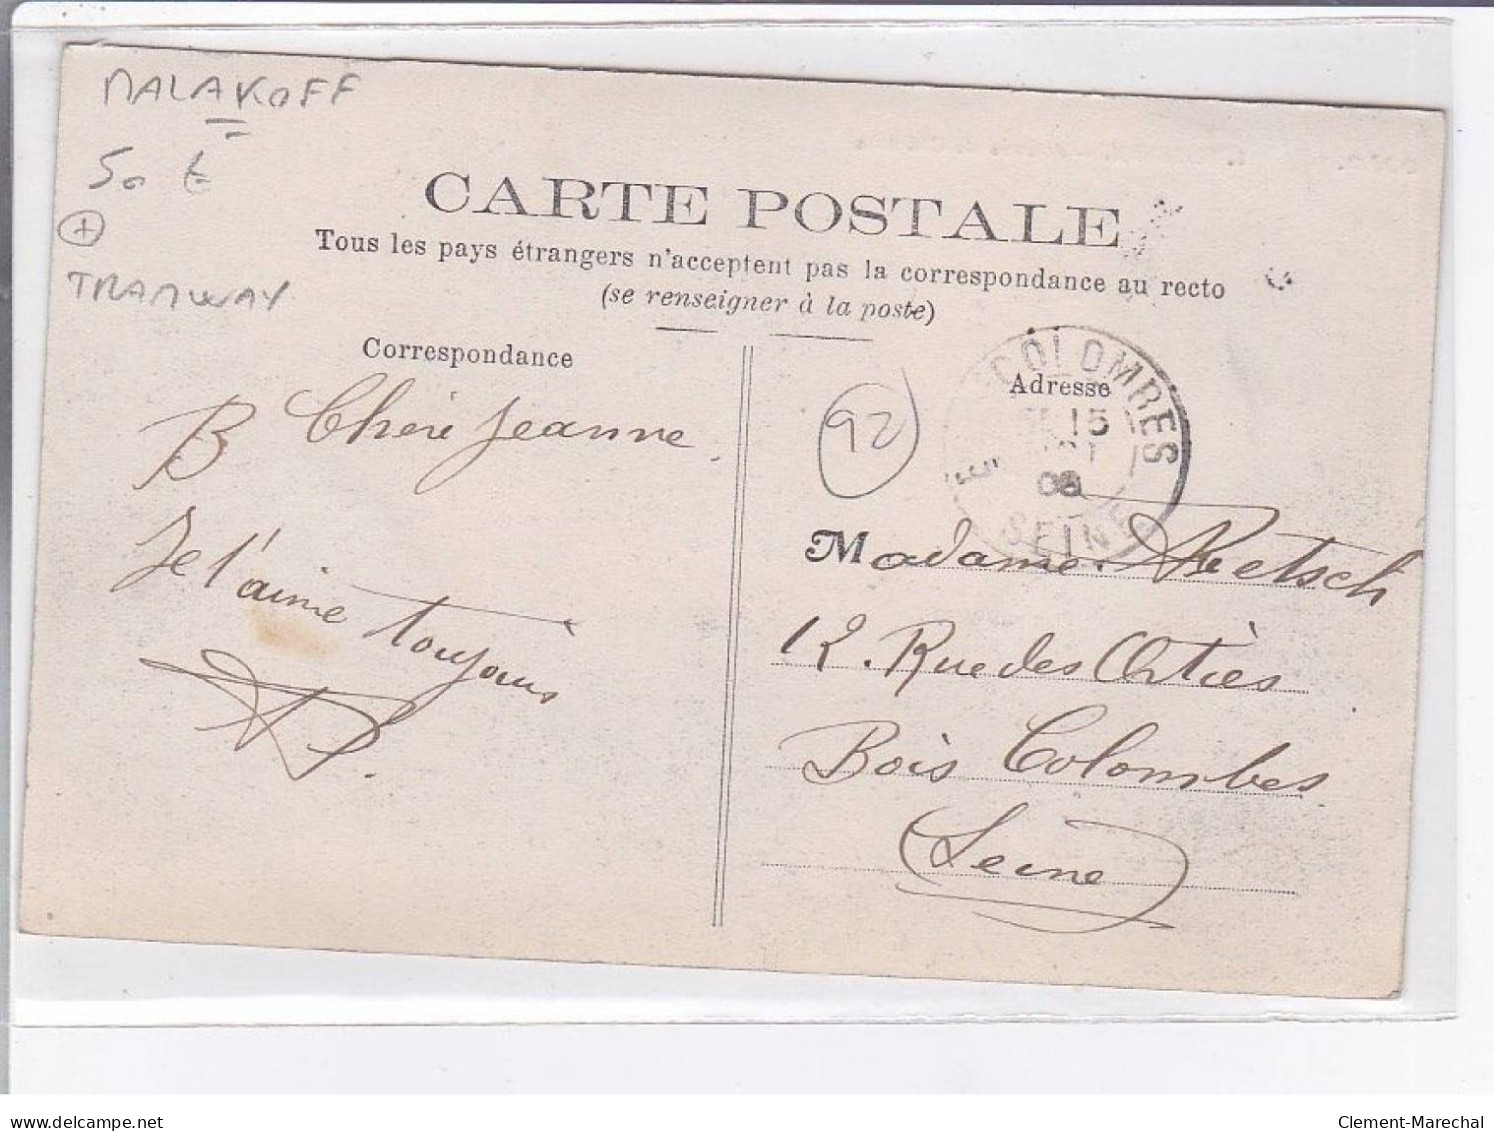 MALAKOFF
50 €
+
TRAMWAY
CARTE POSTALE
Tous les pays étrangers n'acceptent pas la correspondance au recto
(se renseigner à la poste)
Correspondance
B Chère Jeanne
Je t'aime toujours
Adresse
92
COLOMBES
15
08
SEINE
Madame Retsch
12. Rue des Orties
Bois Colombes
(Seine)
www.delcampe.net
Clement-Marechal